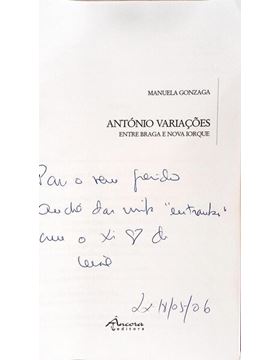 MANUELA GONZAGA
ANTÓNIO VARIAÇÕES
ENTRE BRAGA E NOVA IORQUE
Para o meu
das "entranhas"
com o xi ♡ da
Lx 18/05/06
Âncora
editora